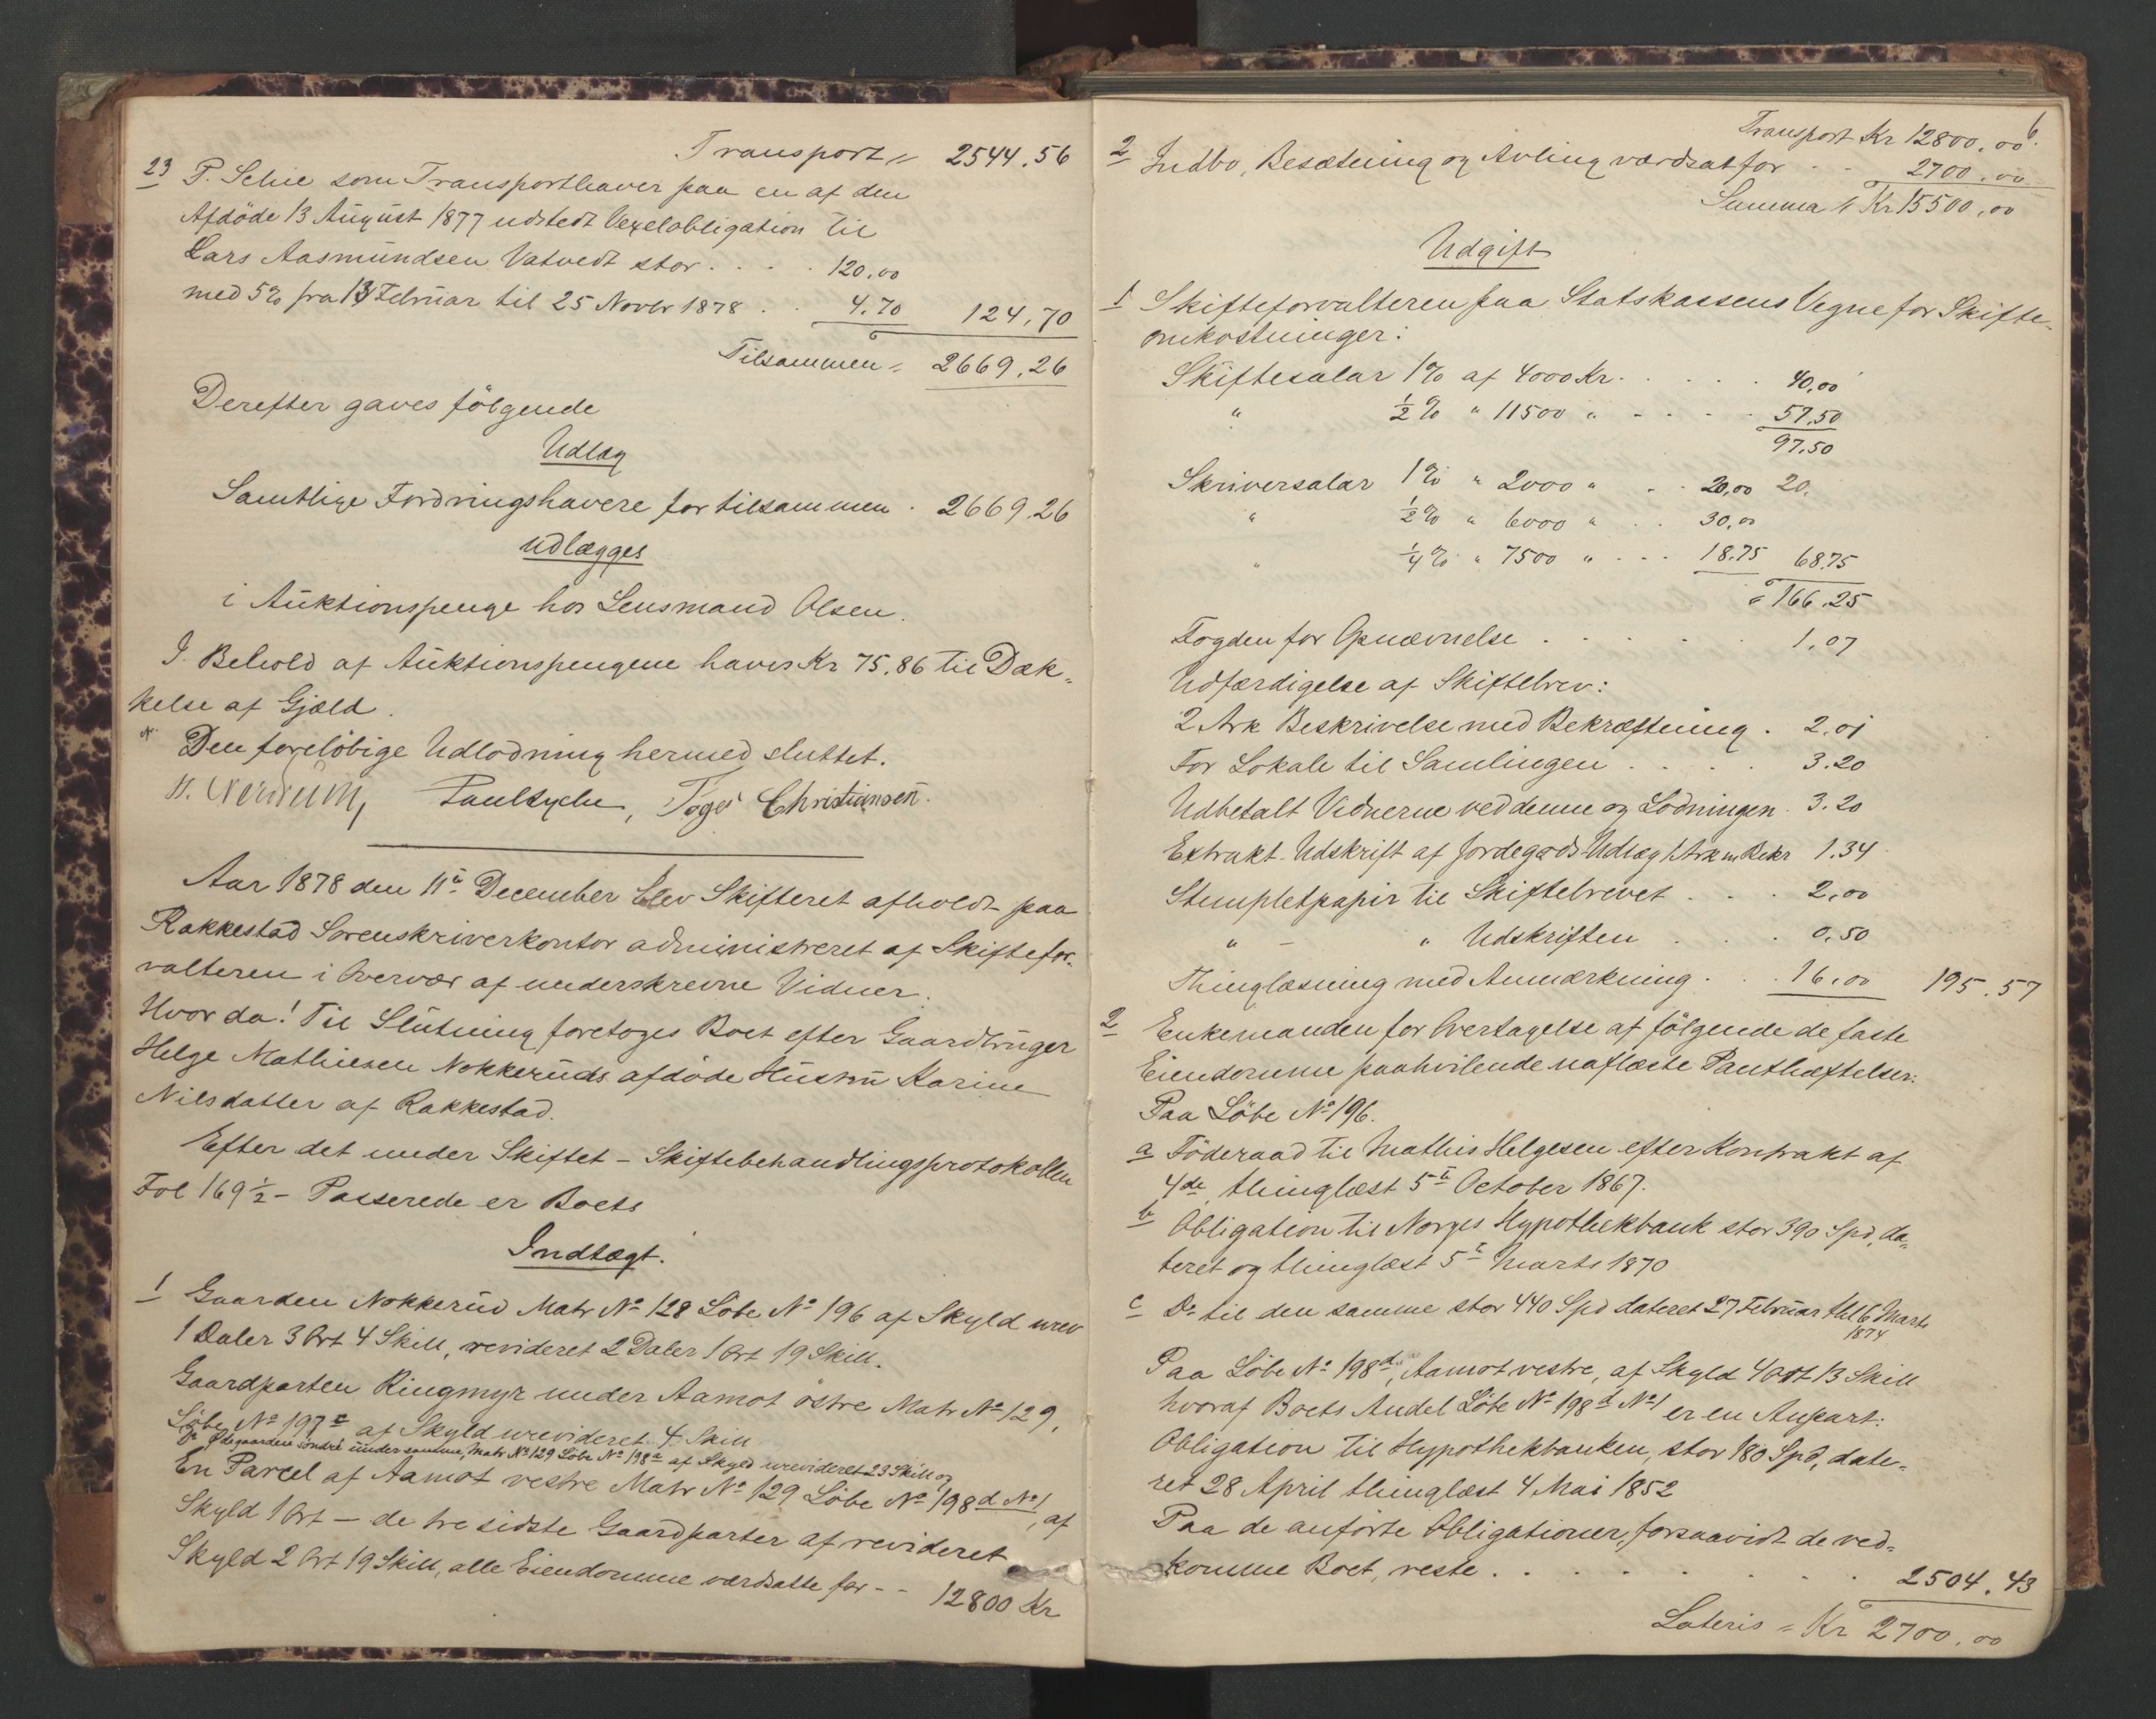 Transport „ 2544.56
23 P. Schie som Transporthaver paa en af den
Afdöde 13 August 1877 udstedt Vexelobligation til
Lars Aasmundsen Vatvedt stor . . . 120.00
med 5% fra 13 Februar til 25 Novbr 1878 . . 4.70 124.70
Tilsammen = 2669.26
Derefter gaves fölgende
Udlæg
Samtlige Fordringshavere for tilsammen . 2669.26
udlægges
i Auktionspenge hos Lensmand Olsen.
I Behold af Auktionspengene haves Kr 75.86 til Dæk-
kelse af Gjæld.
Den forelöbige Udlodning hermed sluttet.
Christiansen.
Aar 1878 den 11te December blev Skifteret afholdt paa
Rakkestad Sorenskriverkontor administreret af Skiftefor-
valteren i Overvær af underskrevne Vidner.
Hvorda! Til Slutning foretoges Boet efter Gaardbruger
Helge Mathiesen Nokkeruds afdöde Hustru Karine
Nilsdatter af Rakkestad.
Efter det under Skiftet – Skiftebehandlingsprotokollen
Fol 169 1/2 – Passerede er Boets
Indtægt.
1 Gaarden Nokkerud Matr No 128 Löbe No 196 af Skyld urev
1 Daler 3 Ort 4 Skill, revideret 2 Daler 1 Ort 19 Skill.
Gaardparten Ringmyr under Aamot östre Matr No 129,
Löbe No 197c af Skyld urevideret 4 Skill
Do Ödegaarden söndre under samme, Matr No 129 Löbe No 198a af Skyld urevideret 23 Skill og
En Parcel af Aamot vestre Matr No 129 Löbe No 198d No 1, af
Skyld 1 Ort – de tre sidste Gaardparter af revideret
Skyld 2 Ort 19 Skill, alle Eiendomme værdsatte for - - 12800 Kr
6
Transport Kr 12800.00.
2 Indbo, Besætning og Avling værdsat for . . 2700.00
Summa „ Kr 15500.00
Udgift
1 Skifteforvalteren paa Statskassens Vegne for Skifte-
omkostninger:
Skiftesalar 1% af 4000 Kr. . . . . 40.00
" 1/2% " 11500 " - - - - 57.50
97.50
Skriversalar 1% " 2000 " - . 20.00 20.
" 1/2% " 6000 " . . 30.00
" 1/4% " 7500 " - - - 18.75 68.75
= 166.25
Fogden for Opnævnelse . . . . . 1.07
Udfærdigelse af Skiftebrev:
2 Ark Beskrivelse med Bekræftning . 2.01
For Lokale til Samlingen . . . . 3.20
Udbetalt Vidnerne ved denne og Lodningen . 3.20
Extrakt-Udskrift af Jordegods-Udlæg 1 Ark m Bekr 1.34
Stempletpapir til Skiftebrevet . . . 2.00
" - " Udskriften . . . 0.50
Thinglæsning med Anmærkning . . . 16.00 195.57
2 Enkemanden for Overtagelse af fölgende de faste
Eiendomme paahvilende uaflæste Panthæftelser:
Paa Löbe No 196.
a Föderaad til Mathis Helgesen efter Kontrakt af
4de, thinglæst 5te October 1867.
b Obligation til Norges Hypothekbank stor 390 Spd, da-
teret og thinglæst 5te Marts 1870
c Do til den samme stor 440 Spd dateret 27 Februar thl 6 Marts
1874
Paa Löbe No 198d, Aamot vestre, af Skyld 4 Ort 13 Skill
hvoraf Boets Andel Löbe No 198d No 1 er en Anpart:
Obligation til Hypothekbanken, stor 180 Spd, date-
ret 28 April thinglæst 4 Mai 1852
Paa de anförte Obligationer, forsaavidt de ved-
komme Boet, reste . . . . . . 2504.43
Lateris = Kr 2700.00